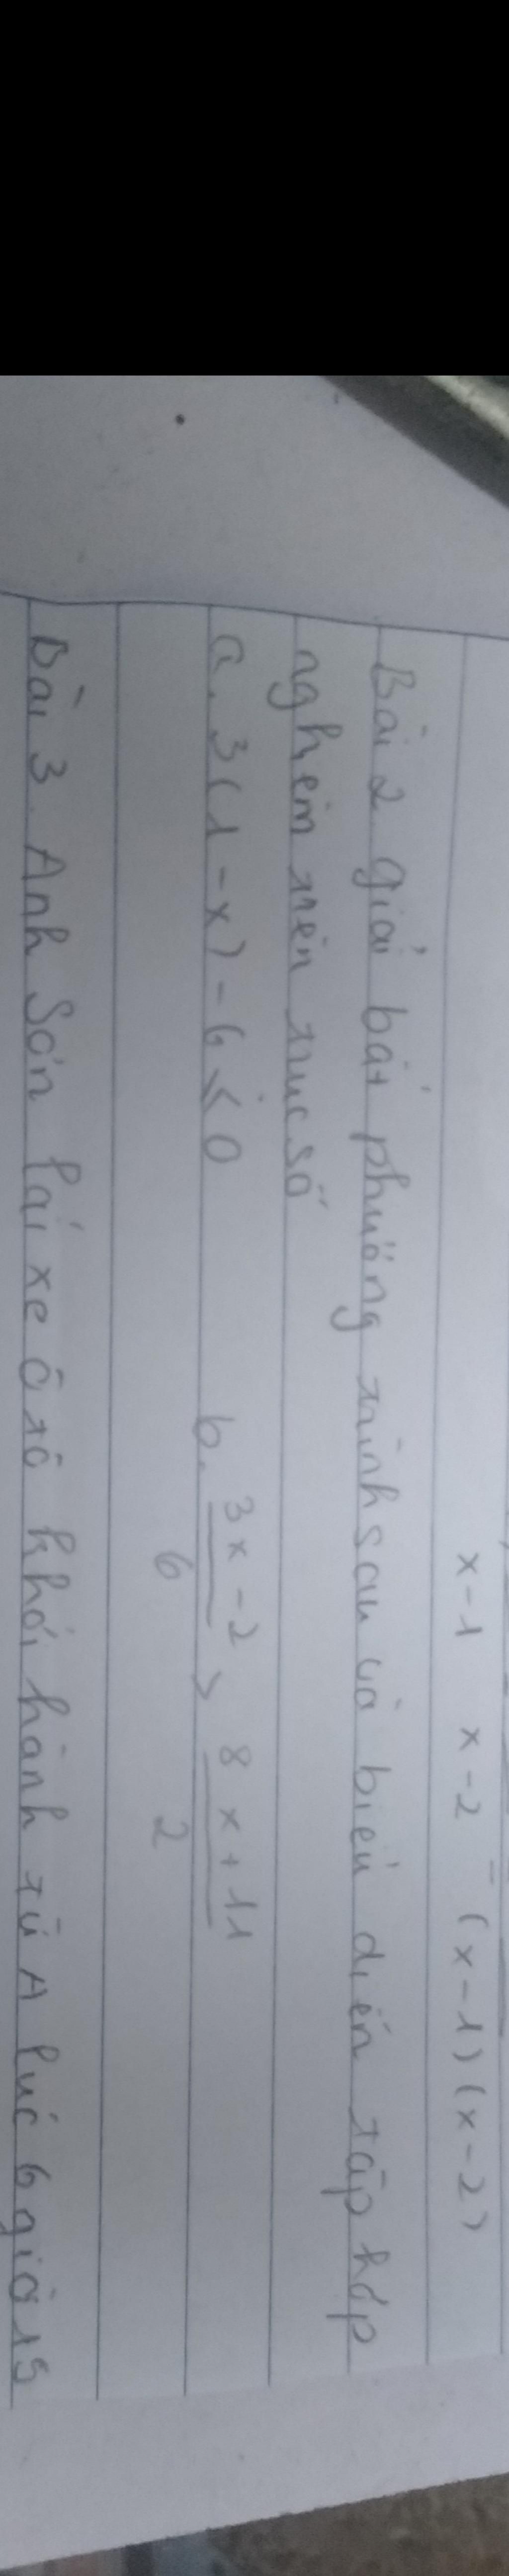 x-1 x-2 (x-1)(x-2)
Bài 2 giải bất phương trình sau và biểu diễn tập hợp
nghiệm trên trục số
a. 3(1-x)-6 ≤ 0 b. 3x-2/6 > 8x+11/2
Bài 3. Anh Sơn lái xe ô tô khởi hành từ A lúc 6 giờ 15